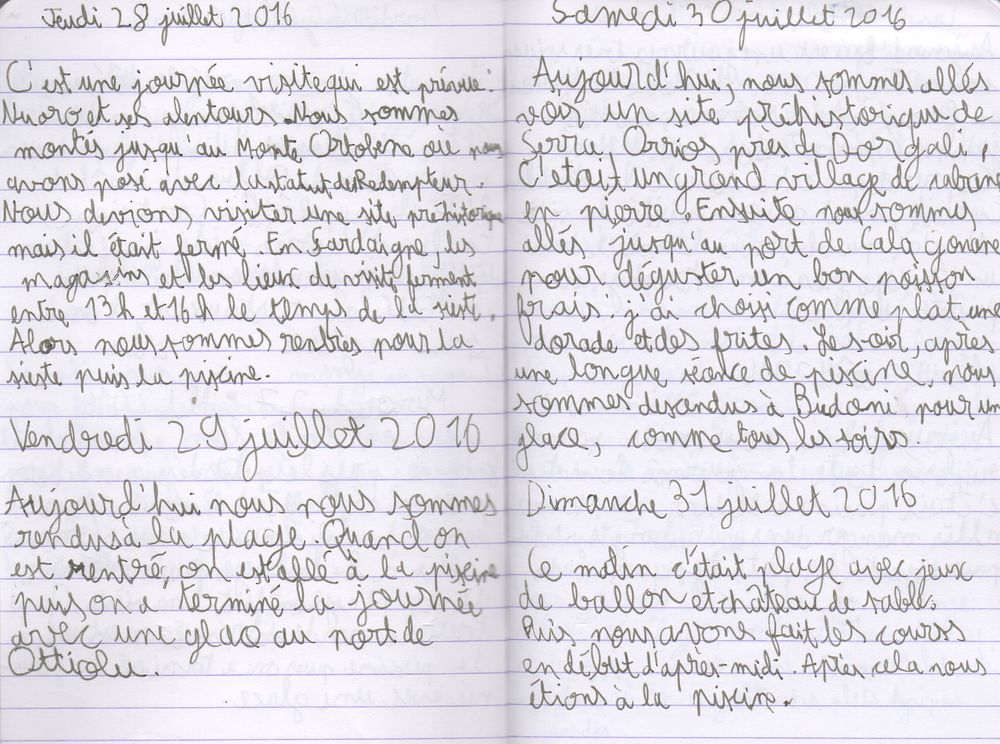 Jeudi 28 juillet 2016
C'est une journée visite qui est prévue :
Nuoro et ses alentours. Nous sommes
montés jusqu'au Monte Ortobene où nous
avons posé avec la statut du Redempteur.
Nous devions visiter une site prehistorique
mais il était fermé. En Sardaigne, les
magasins et les lieux de visite ferment
entre 13h et 16h le temps de la sieste.
Alors nous sommes rentrès pour la
sieste puis la piscine.
Vendredi 29 juillet 2016
Aujourd'hui nous nous sommes
rendus à la plage. Quand on
est rentré, on est allé à la piscine
puis on a terminé la journée
avec une glace au port de
Ottiolu.
Samedi 30 juillet 2016
Aujourd'hui, nous sommes allés
voir un site préhistorique de
Serra Orrios près de Dorgali.
C'etait un grand village de cabane
en pierre. Ensuite nous sommes
allés jusqu'au port de Cala gonone
pour déguster un bon poisson
frais. j'ai choisi comme plat une
dorade et des frites. Le soir, après
une longue séance de piscine, nous
sommes descendus à Budoni pour une
glace, comme tous les soirs
Dimanche 31 juillet 2016
Ce matin c'était plage avec jeux
de ballon et château de sable.
Puis nous avons fait les courses
en début d'après-midi. Après cela nous
étions à la piscine.